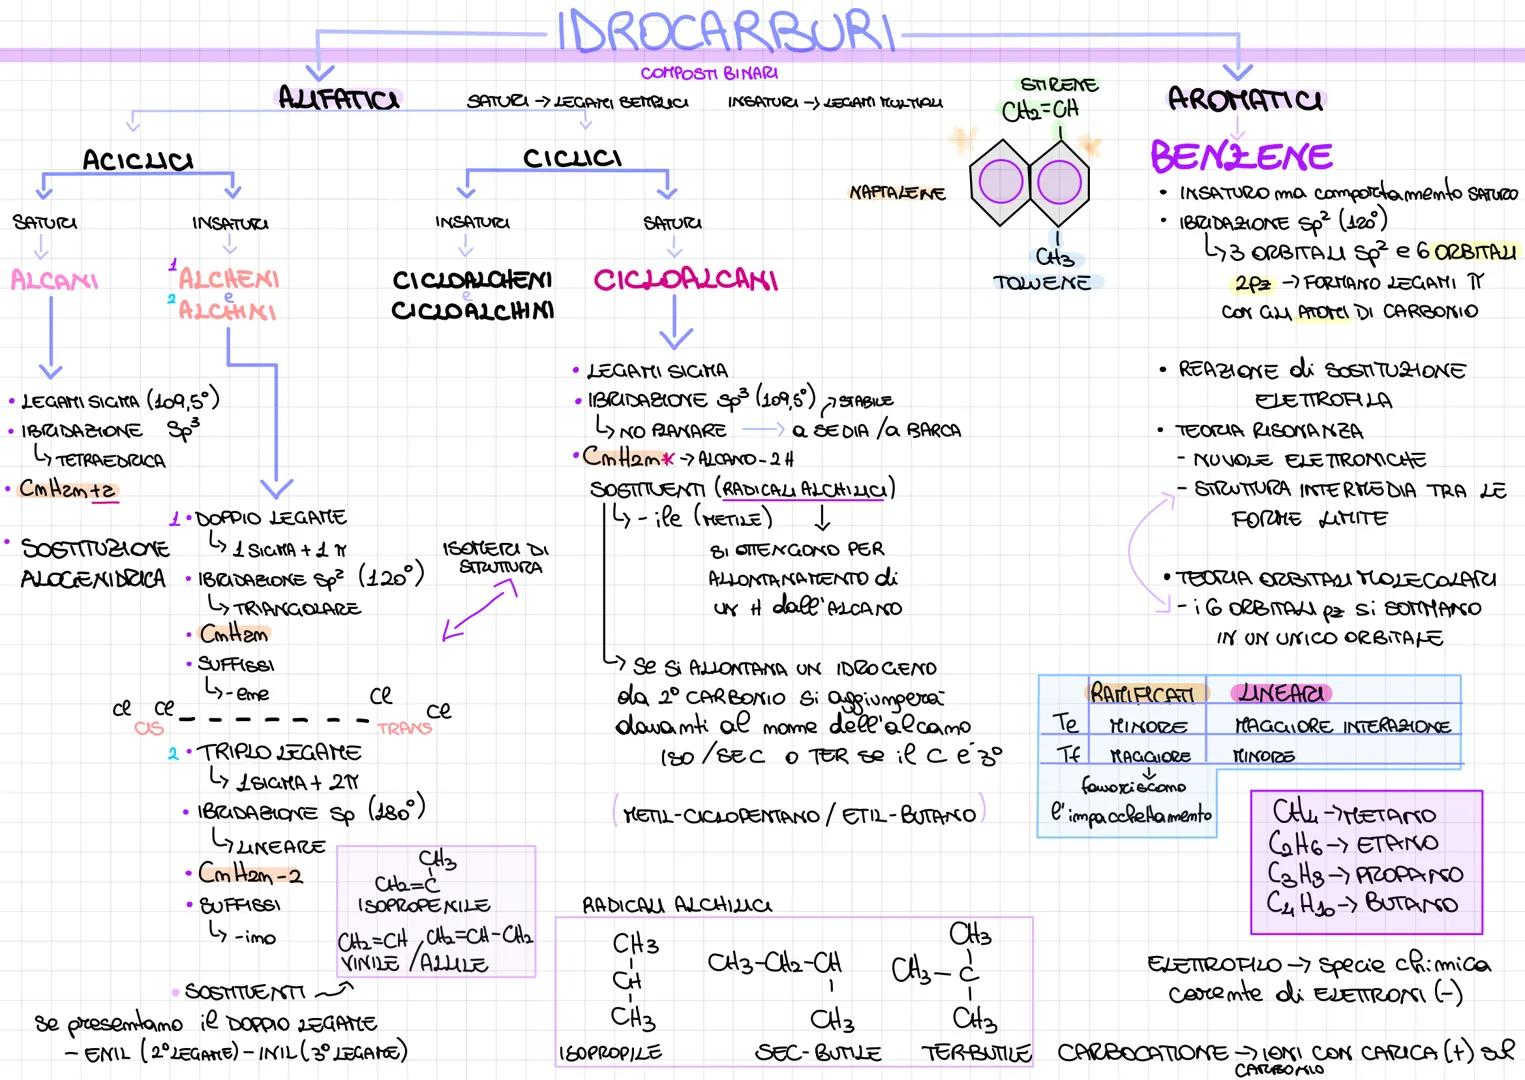 IDROCARBURI
COMPOSTI BINARI
ALIFATICI
SATURI → LEGAMI SEMPLICI
INSATURI → LEGAMI MULTIPLI
AROMATICI
ACICLICI
CICLICI
SATURI
INSATURI
INSATURI
SATURI
ALCANI
1 ALCHENI
e
2 ALCHINI
CICLOALCHENI
e
CICLOALCHINI
CICLOALCANI
STIRENE
CH2=CH
NAFTALENE
CH3
TOLUENE
BENZENE
• INSATURO ma comportamento SATURO
• IBRIDAZIONE Sp² (120°)
↳ 3 ORBITALI Sp² e 6 ORBITALI
2pz → FORMANO LEGAMI π
CON GLI ATOMI DI CARBONIO
• REAZIONE di SOSTITUZIONE
ELETTROFILA
• TEORIA RISONANZA
- NUVOLE ELETTRONICHE
- STRUTTURA INTERMEDIA TRA LE
FORME LIMITE
• TEORIA ORBITALI MOLECOLARI
- i 6 ORBITALI pz si SOMMANO
IN UN UNICO ORBITALE
• LEGAMI SIGMA (109,5°)
• IBRIDAZIONE Sp³
↳ TETRAEDRICA
• CnH2n+2
• SOSTITUZIONE
ALOGENIDRICA
1 • DOPPIO LEGAME
↳ 1 SIGMA + 1 π
• IBRIDAZIONE Sp² (120°)
↳ TRIANGOLARE
• CnH2n
• SUFFISSI
↳ -ene
Cl Cl
CIS
Cl
Cl
TRANS
ISOMERI DI
STRUTTURA
2 • TRIPLO LEGAME
↳ 1 SIGMA + 2π
• IBRIDAZIONE Sp (180°)
↳ LINEARE
• CnH2n-2
• SUFFISSI
↳ -ino
• SOSTITUENTI
se presentano il DOPPIO LEGAME
- ENIL (2° LEGAME) - INIL (3° LEGAME)
CH3
CH2=C
ISOPROPENILE
CH2=CH / CH2=CH-CH2
VINILE / ALLILE
• LEGAMI SIGMA
• IBRIDAZIONE Sp³ (109,5°) → STABILE
↳ NO PLANARE → a SEDIA / a BARCA
• CnH2n* → ALCANO - 2H
SOSTITUENTI (RADICALI ALCHILICI)
↳ - ile (METILE)
SI OTTENGONO PER
ALLONTANAMENTO di
UN H dall'ALCANO
↳ Se Si ALLONTANA UN IDROGENO
da 2° CARBONIO Si aggiungerà
davanti al nome dell'alcano
ISO / SEC O TER se il C é 3°
(METIL-CICLOPENTANO / ETIL-BUTANO)
RADICALI ALCHILICI
CH3
CH
CH3
ISOPROPILE
CH3-CH2-CH
CH3
SEC-BUTILE
CH3
CH3-C
CH3
TER-BUTILE
RAMIFICATI LINEARI
Te MINORE MAGGIORE INTERAZIONE
Tf MAGGIORE MINORE
favoriscono
l'impacchettamento
CH4 → METANO
C2H6 → ETANO
C3H8 → PROPANO
C4H10 → BUTANO
ELETTROFILO → specie chimica
carente di ELETTRONI (-)
CARBOCATIONE → IONI CON CARICA (+) sul
CARBONIO